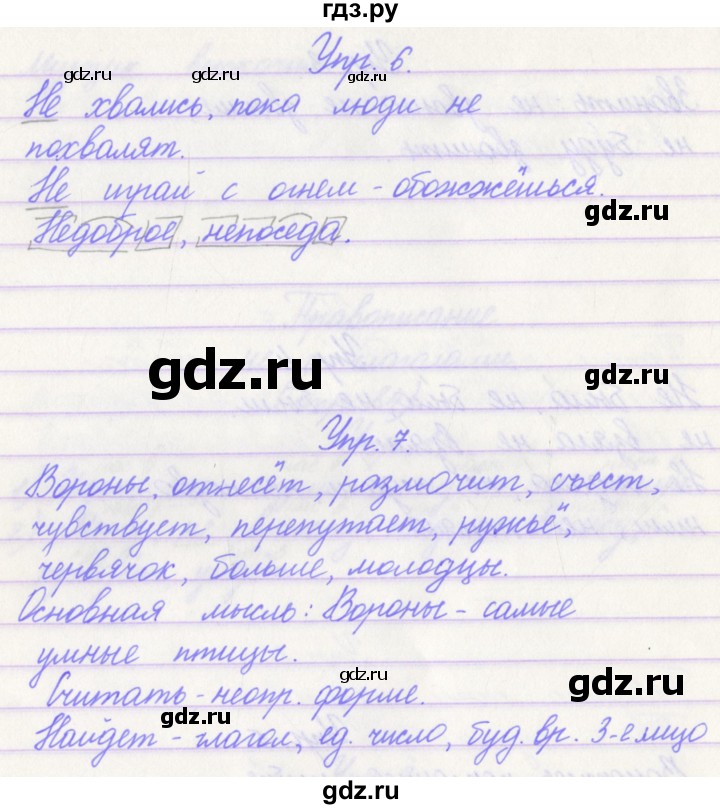 гдз.ру
Упр. 6.
gdz.ru
gdz.ru
gdz.ru
Не хвались, пока люди не
похвалят.
Не играй с огнем - обожжёшься.
gdz.ru
Недоброе, непоседа.
gdz.ru
gdz.ru
Упр. 7.
Вороны, отнесёт, размочит, съест,
чувствует, перепутает, ружьё,
червячок, больше, молодцы.
Основная мысль: Вороны - самые
умные птицы.
gdz.ru
gdz.ru
Считать - неопр. форме.
gdz.ru
Найдет - глагол, ед. число, буд. вр. 3-е лицо